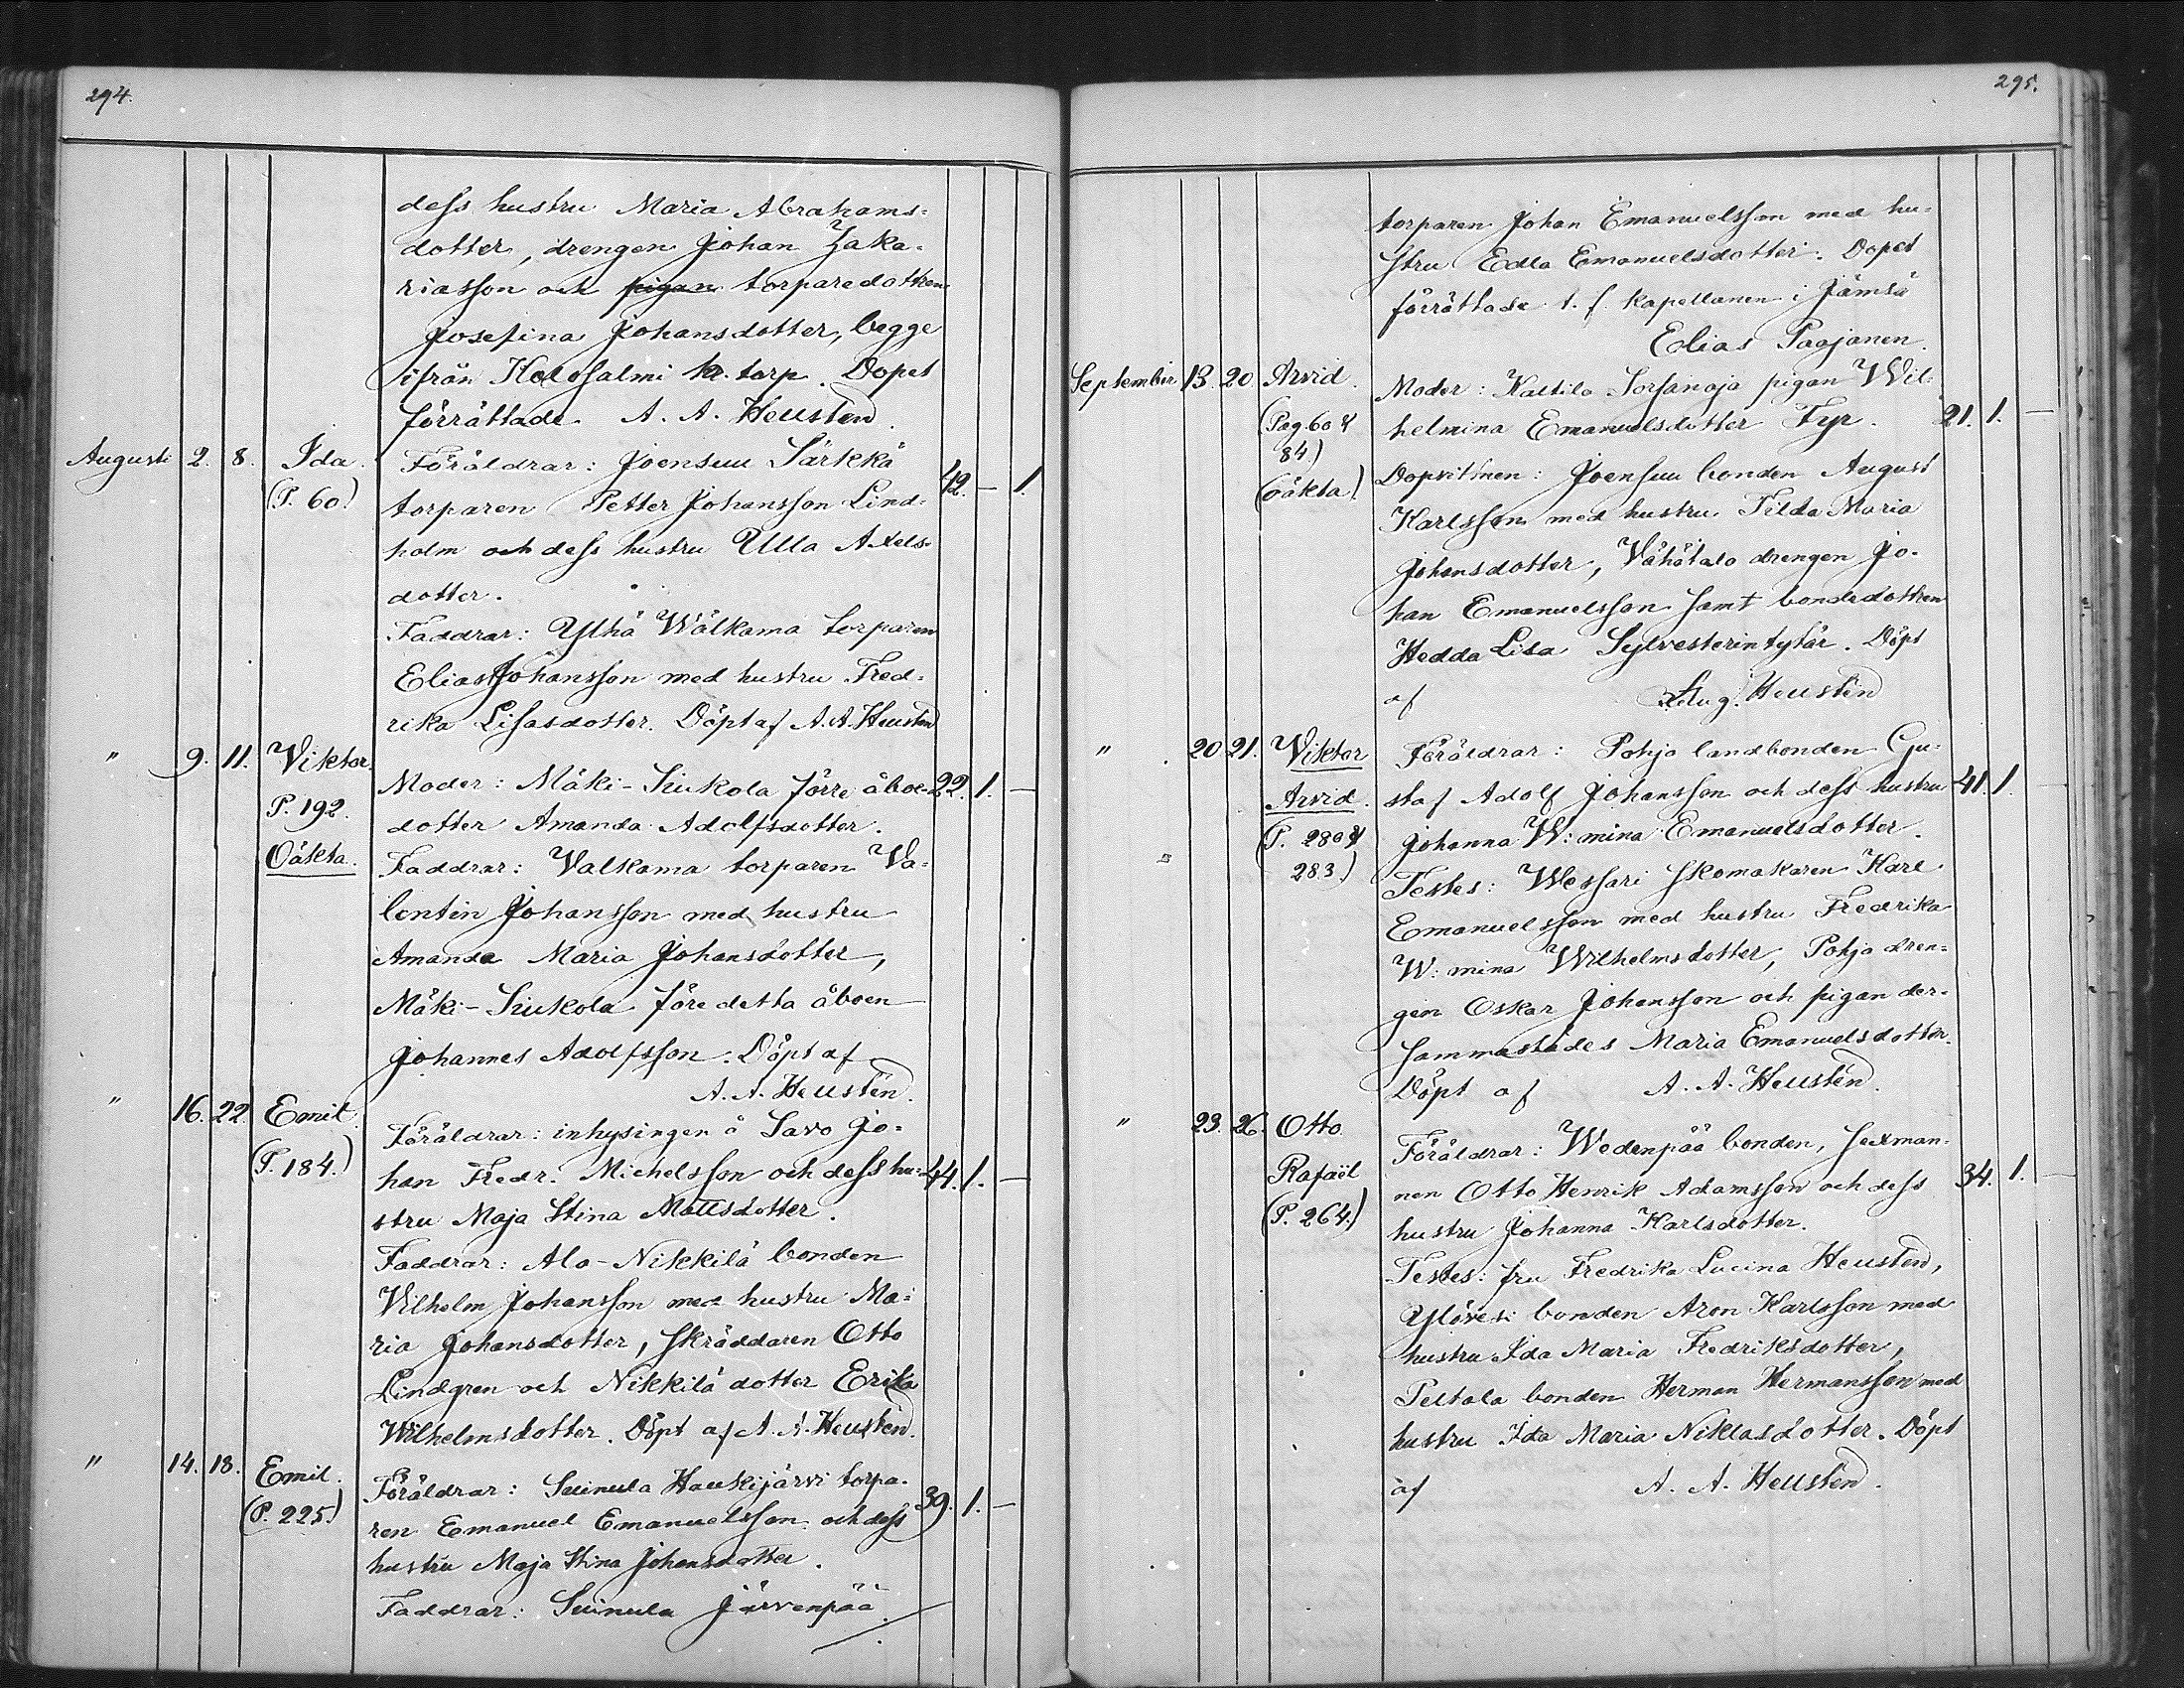 294.
dess hustru Maria Abrahams-
dotter, drengen Johan Zaka-
riasson och pigan torparedottren
Josefina Johansdotter, begge
ifrån Holosalmi kr. torp. Dopet
förrättade A. A. Heustén.
Augusti 2. 8. Ida. (P. 60.)
Föräldrar: Joensuu Särkkä
torparen Petter Johansson Lind- 42. — 1.
holm och dess hustru Ulla Axels-
dotter.
Faddrar: Ylhä Wälkama torparen
Elias Johansson med hustru Fred-
rika Lisasdotter. Döpt af A. A. Heustén
" 9. 11. Viktor. P. 192. Oäkta.
Moder: Mäki-Siukola förre åboe- 22. 1. —
dotter Amanda Adolfsdotter.
Faddrar: Valkama torparen Va-
lentin Johansson med hustru
Amanda Maria Johansdotter,
Mäki-Siukola före detta åboen
Johannes Adolfsson. Döpt af
A. A. Heustén.
" 16. 22. Emil. (P. 184.)
Föräldrar: inhysingen å Savo Jo-
han Fredr. Michelsson och dess hu- 44. 1. —
stru Maja Stina Mattsdotter.
Faddrar: Ala-Nikkilä bonden
Vilhelm Johansson med hustru Ma-
ria Johansdotter, skräddaren Otto
Lindgren och Nikkilä dotter Erika
Wilhelmsdotter. Döpt af A. A. Heustén.
" 14. 18. Emil. (P. 225.)
Föräldrar: Suinula Haukijärvi torpa-
ren Emanuel Emanuelsson och dess 39. 1. —
hustru Maja Stina Johansdotter.
Faddrar: Suinula Järvenpää
295.
torparen Johan Emanuelsson med hu-
stru Edla Emanuelsdotter. Dopet
förrättade t. f. kapellanen i Jämsä
Elias Paajanen.
September 13. 20. Arvid. (Pag. 60 & 84.) (oäkta)
Moder: Kaltila Sorsanoja pigan Wil-
helmina Emanuelsdotter Fyr. 21. 1. —
Dopvittnen: Joensuu bonden August
Karlsson med hustru Tilda Maria
Johansdotter, Vähätalo drengen Jo-
han Emanuelsson samt bondedottren
Hedda Lisa Sylvesterintytär. Döpt
af Aug. Heustén
" 20. 21. Viktor Arvid. (P. 280 & 283.)
Föräldrar: Pohja landbonden Gu-
staf Adolf Johansson och dess hustru 41. 1. —
Johanna W:mina Emanuelsdotter.
Testes: Wessari skomakaren Karl
Emanuelsson med hustru Fredrika
W:mina Wilhelmsdotter, Pohja dren-
gen Oskar Johansson och pigan der-
sammastädes Maria Emanuelsdotter.
Döpt af A. A. Heustén.
" 23. 26. Otto Rafaël (P. 264.)
Föräldrar: Wedenpää bonden, sexman-
nen Otto Henrik Adamsson och dess 34. 1. —
hustru Johanna Karlsdotter.
Testes: fru Fredrika Lucina Heustén,
Ylövesi bonden Aron Karlsson med
hustru Ida Maria Fredriksdotter,
Peltola bonden Herman Hermansson med
hustru Ida Maria Niklasdotter. Döpt
af A. A. Heustén.